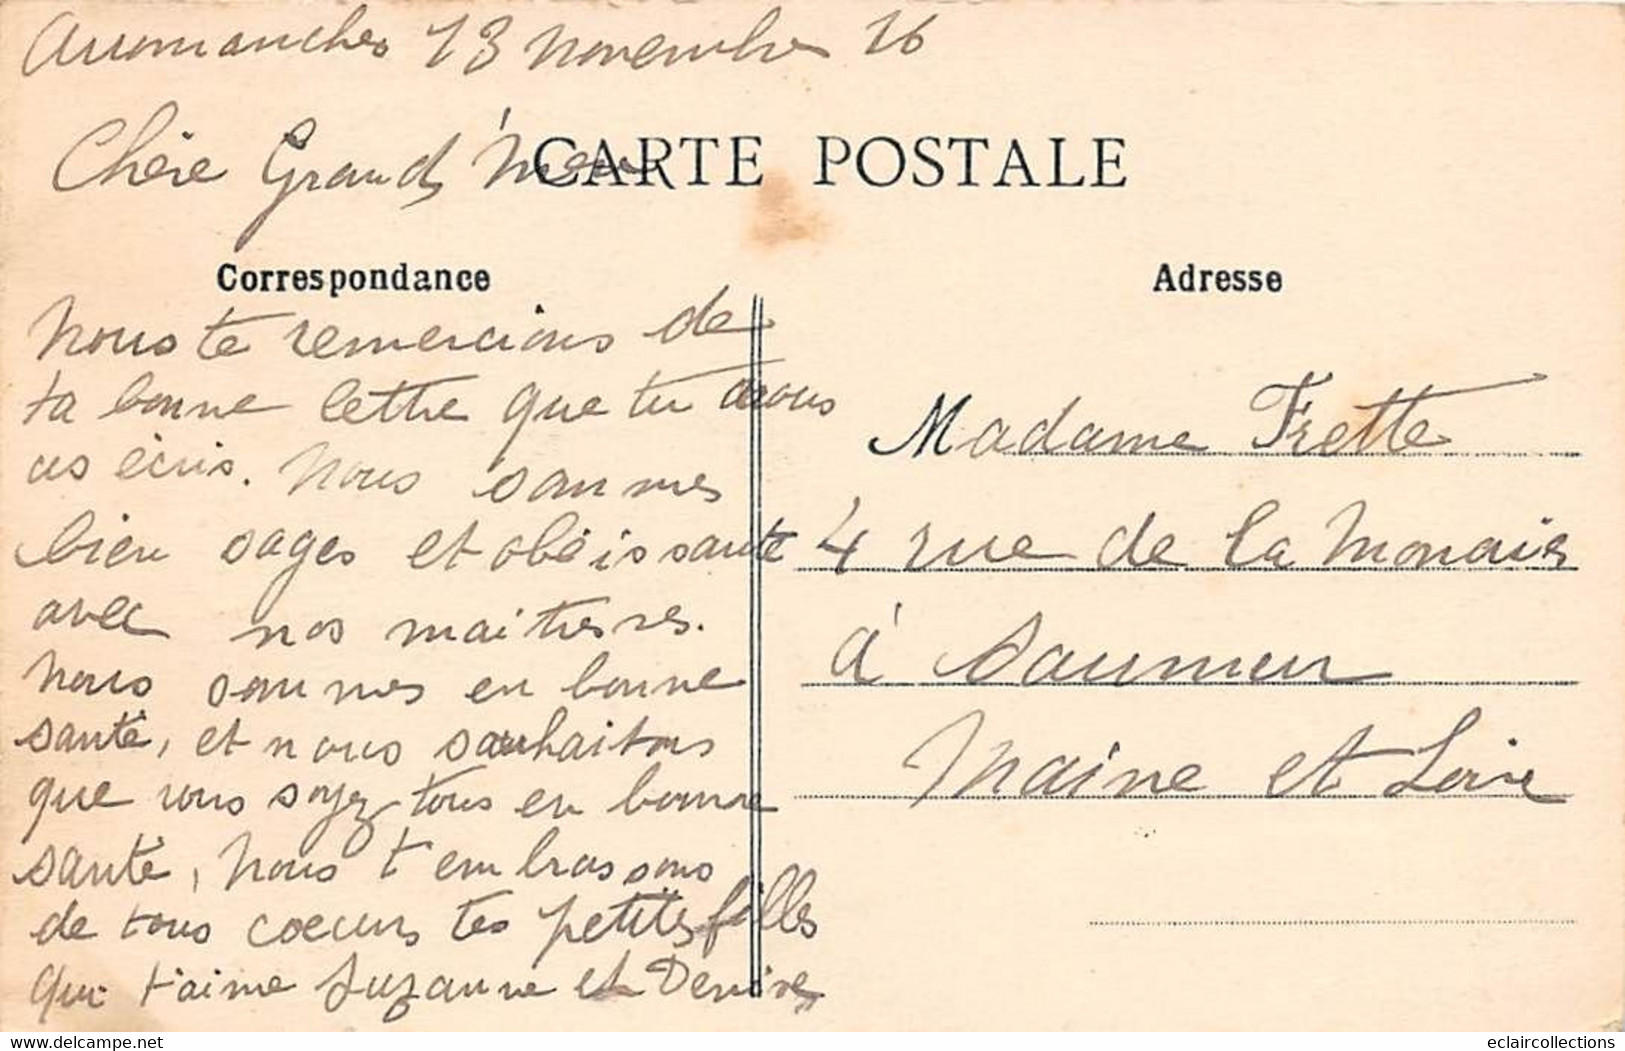 Arromanches 13 novembre 16
Chère Grand'mère
CARTE POSTALE
Correspondance
Adresse
Nous te remercions de
ta bonne lettre que tu nous
as écris. Nous sommes
bien sages et obéissante
avec nos maitresses.
Nous sommes en bonne
santé, et nous souhaitons
que vous soyez tous en bonne
santé, Nous t'embrassons
de tous coeurs tes petites filles
qui t'aime Suzanne et Denise
Madame Frette
4 rue de la Monaie
à Saumur
Maine et Loire
delcampe.net
eclaircollections